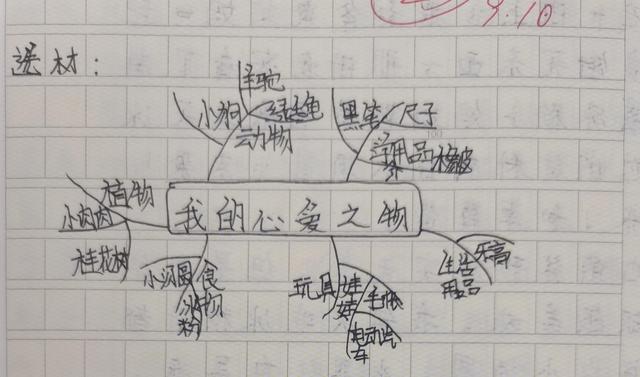 9.10
选材：
羊驼
小狗
绿毛龟
动物
黑笔
尺子
学用品
橡皮
植物
小肉肉
桂花树
我的心爱之物
小汤圆
食物
冰粉
玩具
娃娃
手帐
电动汽车
生活用品
牙膏